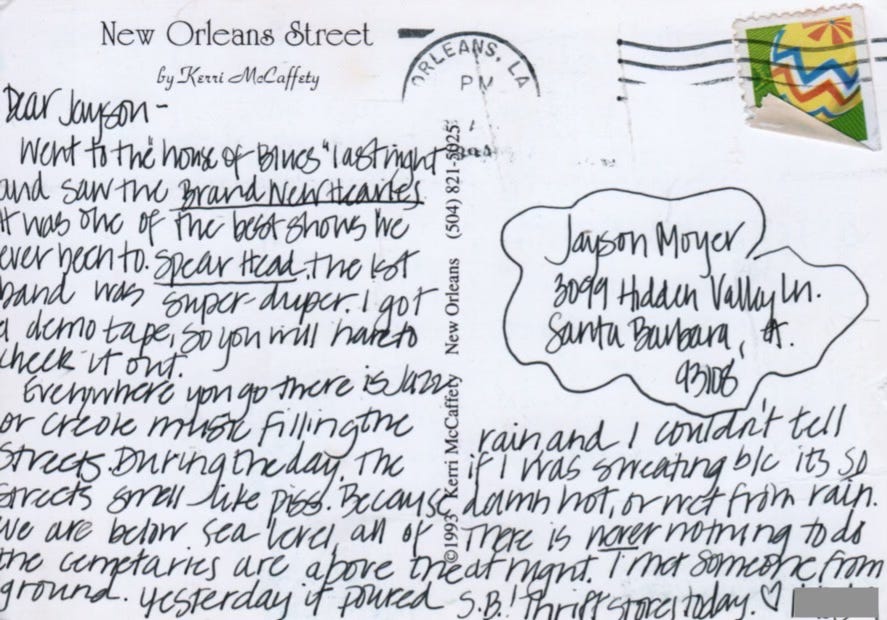 New Orleans Street
by Kerri McCaffety
ORLEANS, LA
PM
Dear Jayson -
Went to the "house of Blues" last night
and saw the Brand New Heavies.
It was one of the best shows I've
ever been to. Spear Head. the 1st
band was super-duper. I got
a demo tape, so you will have to
check it out.
Everywhere you go there is Jazz
or creole music filling the
streets. During the day, the
streets smell like piss. Because
we are below sea level, all of
the cemetaries are above the
ground. Yesterday it poured
©1993 Kerri McCaffety New Orleans (504) 821-5025
Jayson Moyer
3099 Hidden Valley Ln.
Santa Barbara,
93108
rain and I couldn't tell
if I was sweating b/c its so
damn hot, or wet from rain.
There is never nothing to do
at night. I met someone from
S.B.! Thrift stores today. ♡